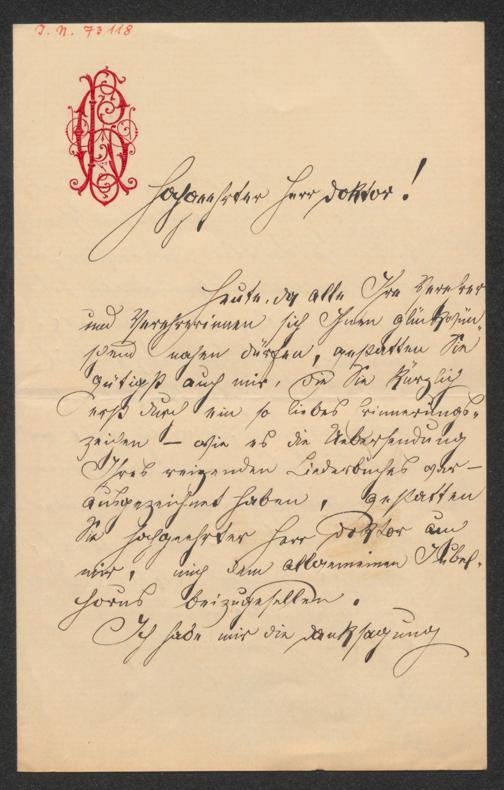 I. N. 73118
Hochgeehrter Herr Doktor!
Heute, da alle Ihre Verehrer
und Verehrerinnen sich Ihnen glückwün-
schend nahen dürfen, gestatten Sie
gütigst auch mir, die Sie kürzlich
erst durch ein so liebes Erinnerungs-
zeichen – wie es die Uebersendung
Ihres reizenden Liederbuches war –
ausgezeichnet haben, gestatten
Sie hochgeehrter Herr Doktor auch
mir, mich dem allgemeinen Jubel-
beizugesellen.
Ich habe mir die Danksagung